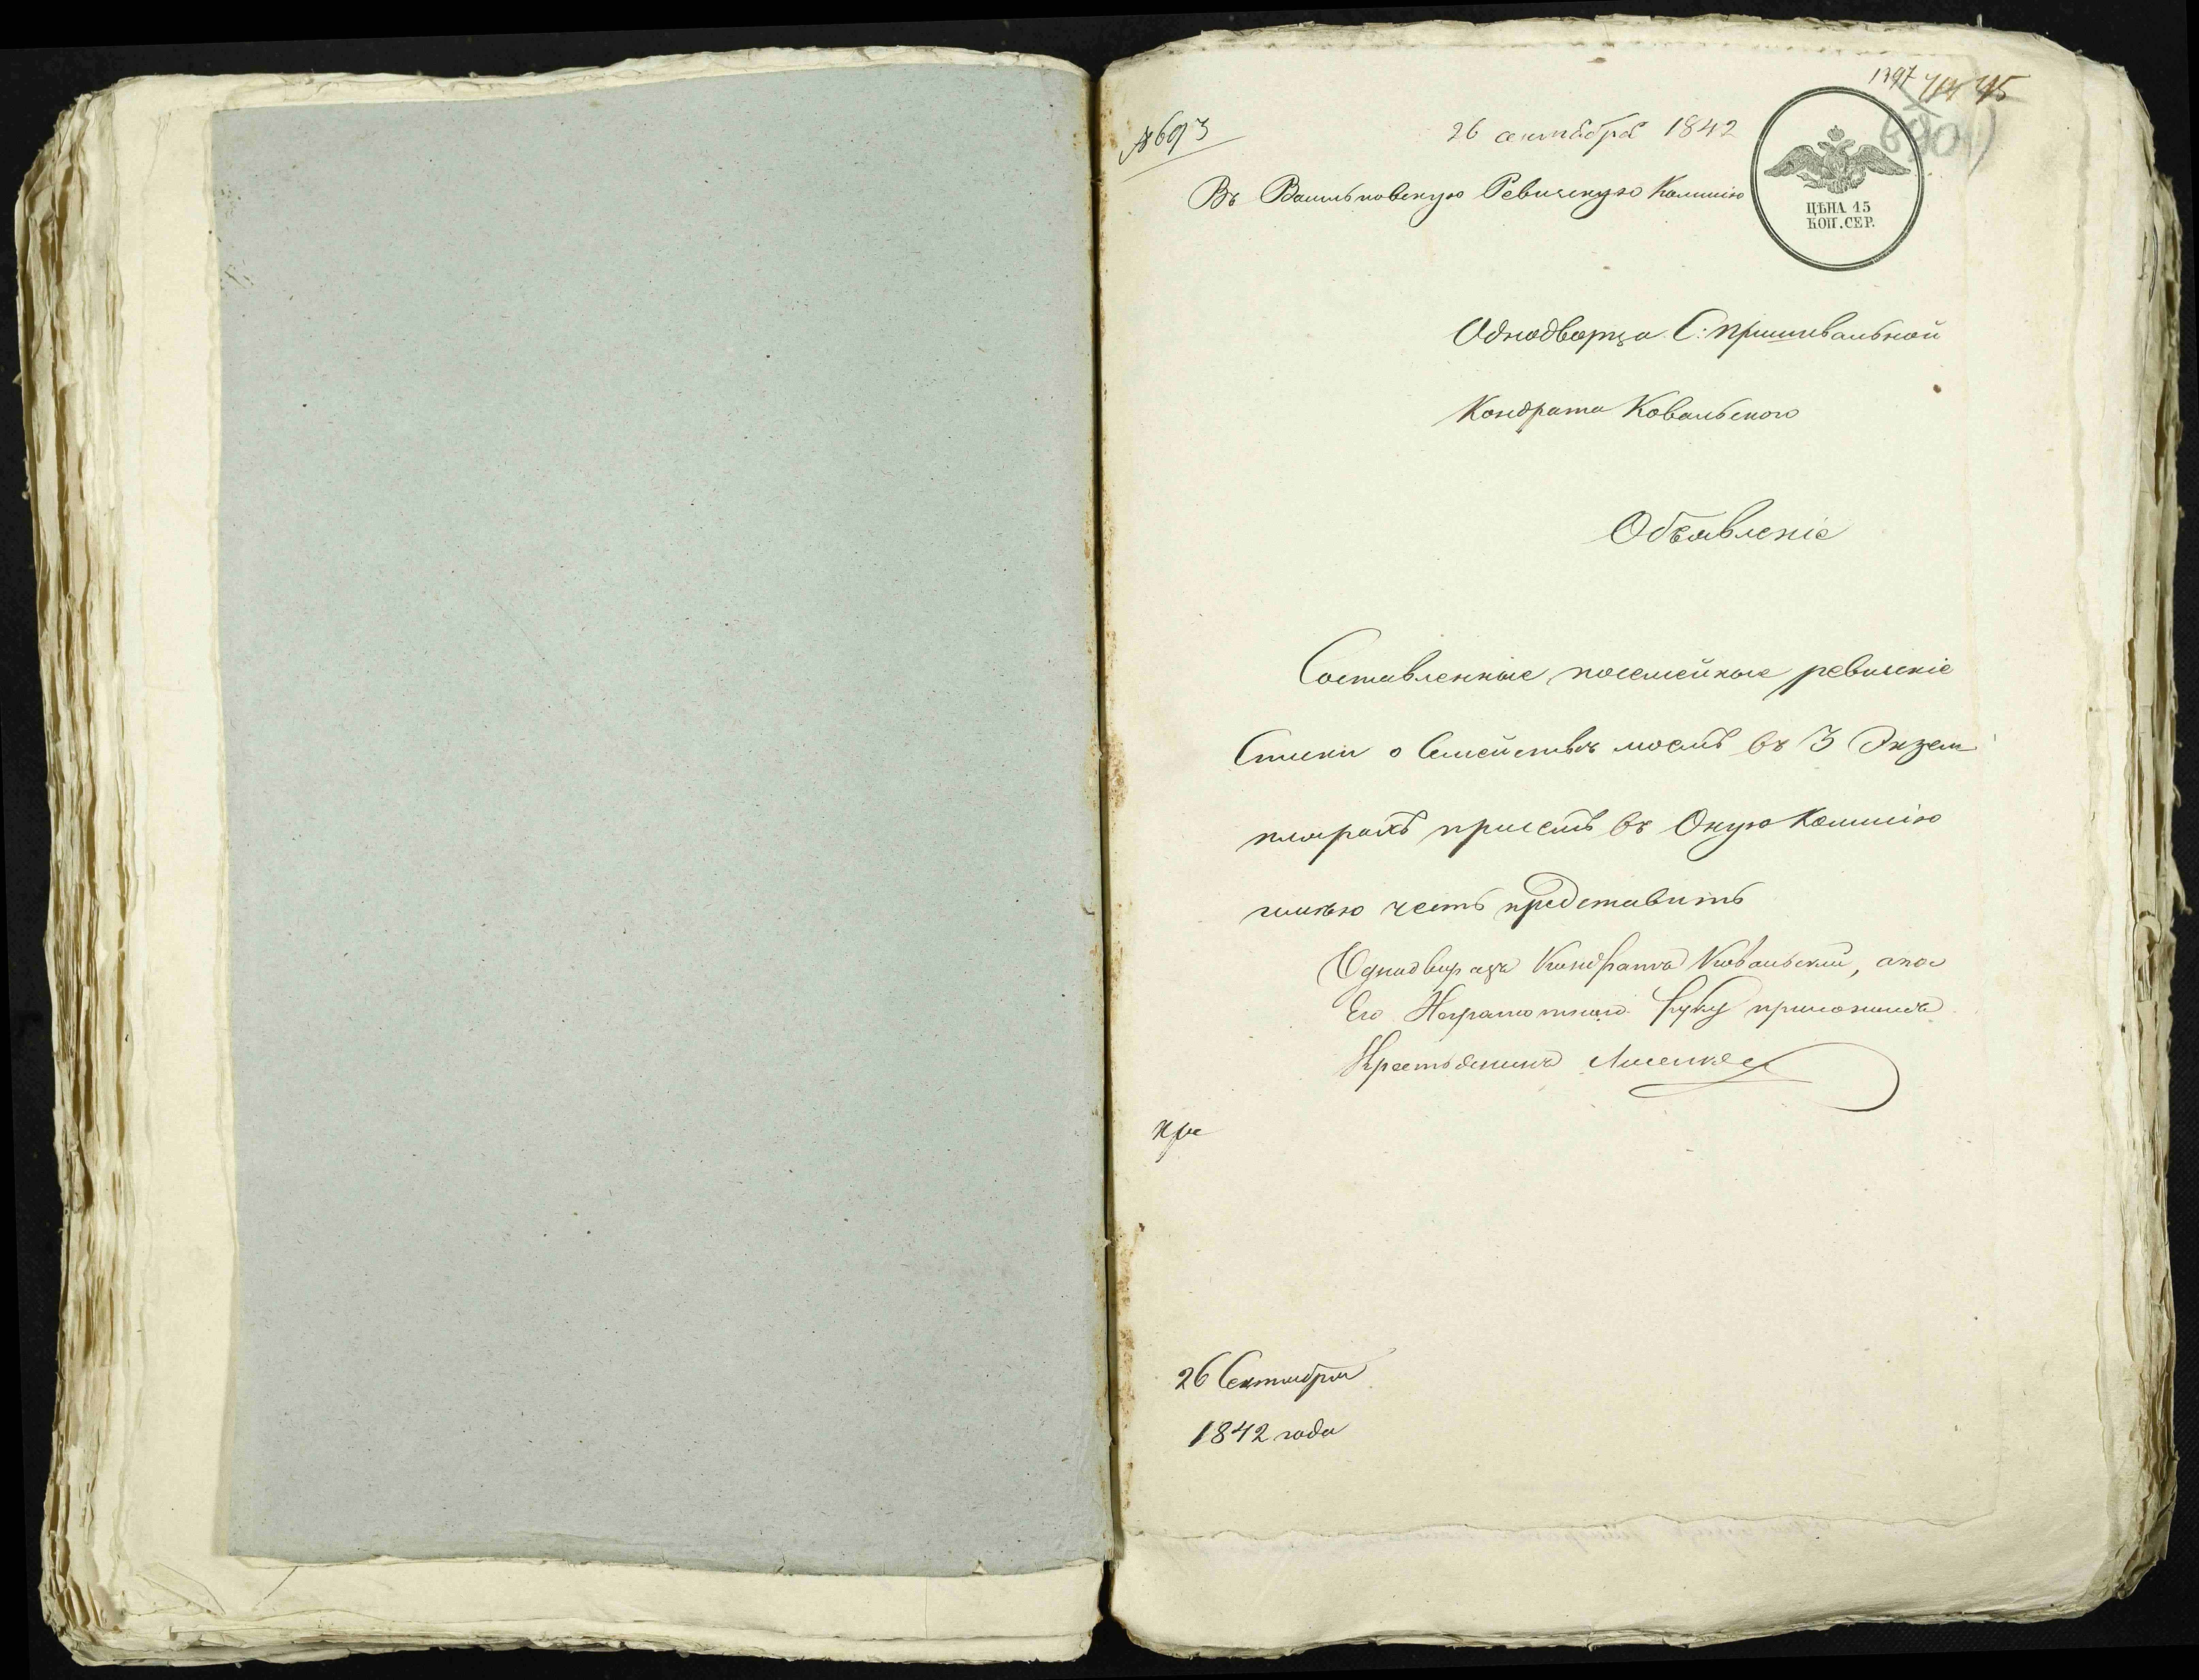 1397
№ 693
26 сентября 1842
Въ Васильковскую Ревизскую Комисію
ЦѢНА 15
КОП. СЕР.
Однодворца С: Пришивальной
Кондрата Ковальского
Объявленіе
Составленные посемейные ревизскіе
Списки о Семействѣ моемъ въ 3 Экзем
плярахъ присемъ въ Оную Комисію
имѣю честь представить
Однодворецъ Кондратъ Ковальскій, апо
Его Неграмотного руку приложилъ
Крестьянинъ
26 Сентября
1842 года